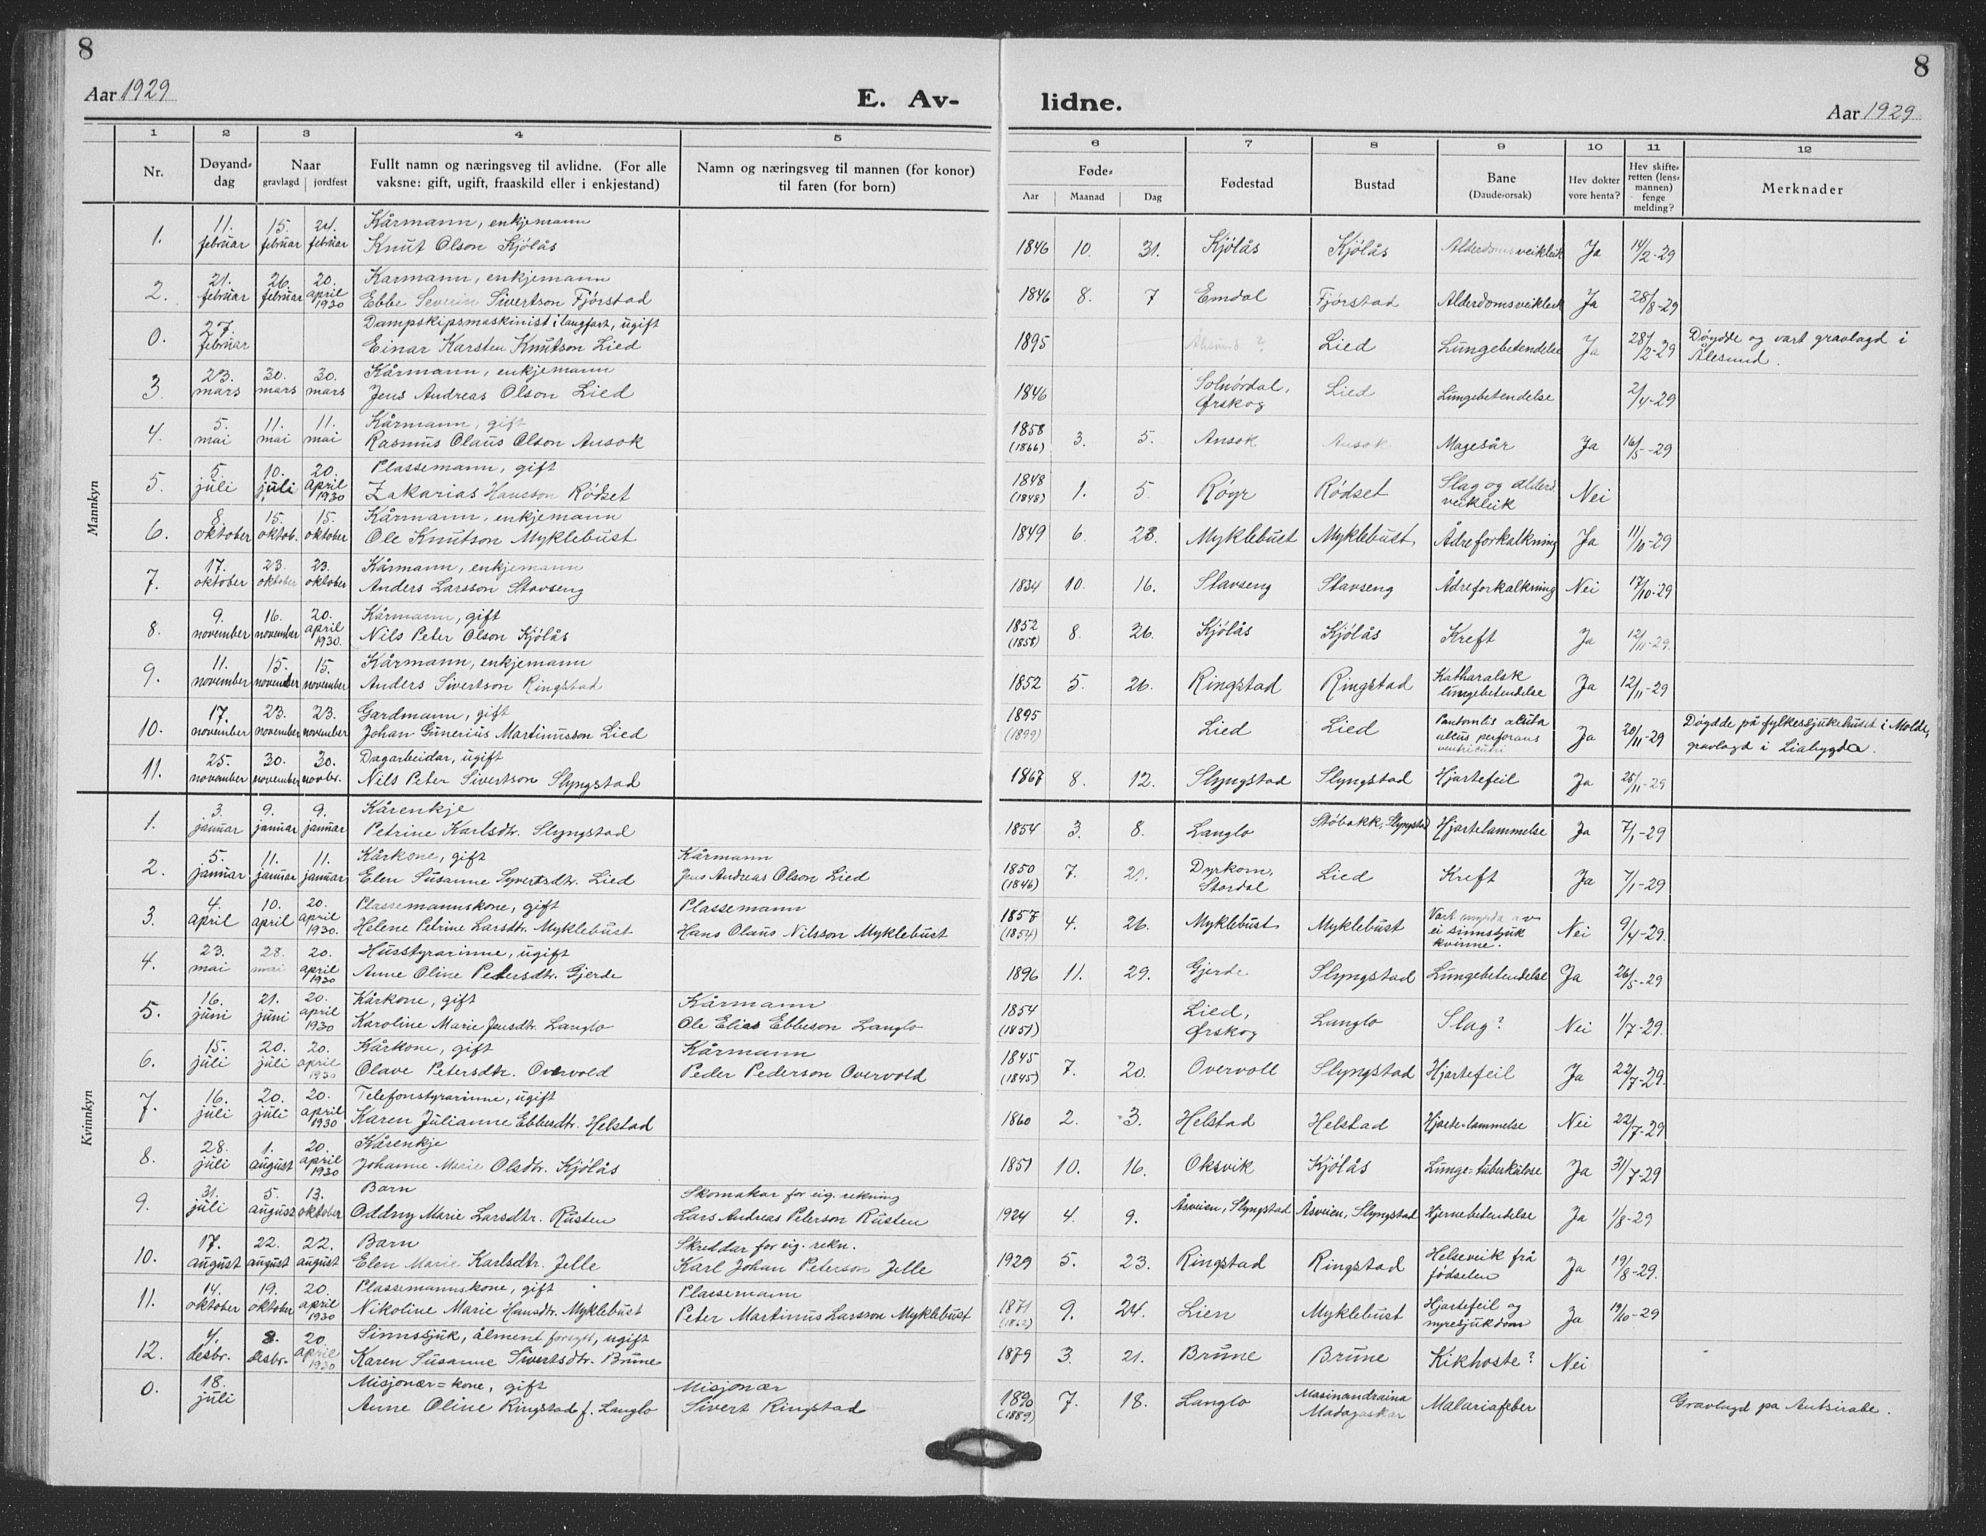 8
8
Aar 1929
E. Av-
lidne.
Aar 1929
1 2 3 4 5 6 7 8 9 10 11 12
Nr.
Døyand-
dag
Naar
gravlagd jordfest
Fullt namn og næringsveg til avlidne. (For alle
vaksne: gift, ugift, fraaskild eller i enkjestand)
Namn og næringsveg til mannen (for konor)
til faren (for born)
Føde-
Aar Maanad Dag
Fødestad
Bustad
Bane
(Daude-orsak)
Hev dokter
vore henta?
Hev skifte-
retten (lens-
mannen)
fenge
melding?
Merknader
Mannkyn
1. 11. februar 15. februar 24. februar Kårmann, enkjemann
Knut Olson Kjølås 1846 10. 31. Kjølås Kjølås Alderdomsveikleik Ja 14/2-29
2. 21. februar 26. februar 20. april 1930 Kårmann, enkjemann
Ebbe Severin Sivertson Fjørstad 1846 8. 7 Emdal Fjørstad Alderdomsveikleik Ja 28/8-29
0. 27. februar Dampskipsmaskinist i langfart, ugift
Einar Karsten Knutson Lied 1895 Lied Lungebetendelse Ja 28/2-29 Døydde og vart gravlagd i
Ålesund.
3. 23. mars 30. mars 30. mars Kårmann, enkjemann
Jens Andreas Olson Lied 1846 Solnørdal, Ørskog Lied Lungebetendelse 2/4-29
4. 5. mai 11. mai 11. mai Kårmann, gift
Rasmus Olaus Olson Ansok 1858 (1866) 3. 5. Ansok Ansok Magesår Ja 16/5-29
5. 5. juli 10. juli 20. april 1930 Plassemann, gift
Zakarias Hansson Rødset 1848 (1848) 1. 5. Røyr Rødset Slag og alderd.
veikleik Nei
6. 8. oktober 15. oktob. 15. oktober Kårmann, enkjemann
Ole Knutson Myklebust 1849 6. 28. Myklebust Myklebust Ådreforkalkning Ja 11/10-29
7. 17. oktober 23. oktober 23. oktober Kårmann, enkjemann
Anders Larsson Stavseng 1834 10. 16. Stavseng Stavseng Ådreforkalkning Nei 17/10-29
8. 9. november 16. november 20. april 1930. Kårmann, gift
Nils Peter Olson Kjølås 1852 (1858) 8. 26. Kjølås Kjølås Kreft Ja 12/11-29.
9. 11. november 15. november 15. november Kårmann, enkjemann
Anders Sivertson Ringstad 1852 5. 26. Ringstad Ringstad Katharalsk
lungebetendelse Ja 12/11-29
10. 17. november 23. november 23. november Gardmann, gift
Johan Gunerius Martinusson Lied 1895 (1899) Lied Lied acuta
ulcus perforans
ventriculi Ja 20/11-29 Døydde på fylkessjukehuset i Molde,
gravlagd i Liabygda.
11. 25. november 30. november 30. novbr. Dagarbeidar, ugift
Nils Peter Sivertson Slyngstad 1867 8. 12. Slyngstad Slyngstad Hjartefeil Ja 25/11-29
Kvinnkyn
1. 3. januar 9. januar 9. januar Kårenkje
Petrine Karlsdtr. Slyngstad 1854 3. 8. Langlo Støbakk, Slyngstad Hjartelammelse Ja 7/1-29
2. 5. januar 11. januar 11. januar Kårkone, gift Kårmann
Elen Susanne Syvertsdtr. Lied Jens Andreas Olson Lied 1850 (1846) 7. 21. Dyrkorn,
Stordal Lied Kreft Ja 7/1-29
3. 4. april 10. april 20. april 1930. Plassemannskone, gift Plassemann
Helene Petrine Larsdtr. Myklebust Hans Olaus Nilsson Myklebust 1857 (1854) 4. 26. Myklebust Myklebust Vart myrda av
ei sinnssjuk
kvinne. Nei 9/4-29.
4. 23. mai 28. mai 20. april 1930 Husstyrarinne, ugift
Anne Oline Petersdtr. Gjerde 1896 11. 29. Gjerde Slyngstad Lungebetendelse Ja 26/5-29
5. 16. juni 21. juni 20. april 1930 Kårkone, gift Kårmann
Karoline Marie Jensdtr. Langlo Ole Elias Ebbeson Langlo 1854 (1851) Lied,
Ørskog Langlo Slag? Nei 1/7-29.
6. 15. juli 20. juli 20. april 1930 Kårkone, gift Kårmann
Olave Petersdtr. Overvold Peder Pederson Overvold 1845 (1845) 7. 20. Overvoll Slyngstad Hjartefeil Ja 22/7-29.
7. 16. juli 20. juli 20. april 1930. Telefonstyrarinne, ugift
Karen Julianne Ebbesdtr. Helstad 1860 2. 3. Helstad Helstad Hjarte-lammelse Nei 22/7-29
8. 28. juli 1. august 20. april 1930 Kårenkje
Johanne Marie Olsdtr. Kjølås 1851 10. 16. Oksvik Kjølås Lunge-tuberkulose Ja 31/7-29
9. 31. juli 5. august 13. oktober Barn Skomakar for eig. rekning
Oddny Marie Larsdtr. Rusten Lars Andreas Peterson Rusten 1924 4. 9. Åsveien, Slyngstad Åsveien, Slyngstad Hjernebetendelse Ja 1/8-29
10. 17. august 22. august 22. august Barn Skreddar for eig. rekn.
Elen Marie Karlsdtr. Jelle Karl Johan Peterson Jelle 1929 5. 23. Ringstad Ringstad Helseveik frå
fødselen Ja 19/8-29.
11. 14. oktober 19. oktober 20. april 1930 Plassemannskone, gift Plassemann
Nikoline Marie Hansdtr. Myklebust Peter Martinus Larsson Myklebust 1871 (1862) 9. 24. Lien Myklebust Hjartefeil og
nyresjukdom Ja 19/10-29
12. 4. desbr. 8. desbr. 20. april 1930 Sinnssjuk, ålment forsytt, ugift
Karen Susanne Sivertsdtr. Brune 1879 3. 21. Brune Brune Kikhoste? Nei
0. 18. juli Misjonær-kone, gift Misjonær
Anne Oline Ringstad f. Langlo Sivert Ringstad 1890 (1889) 7. 18. Langlo Masinandraina
Madagaskar Malariafeber Gravlagd på Antsirabe.